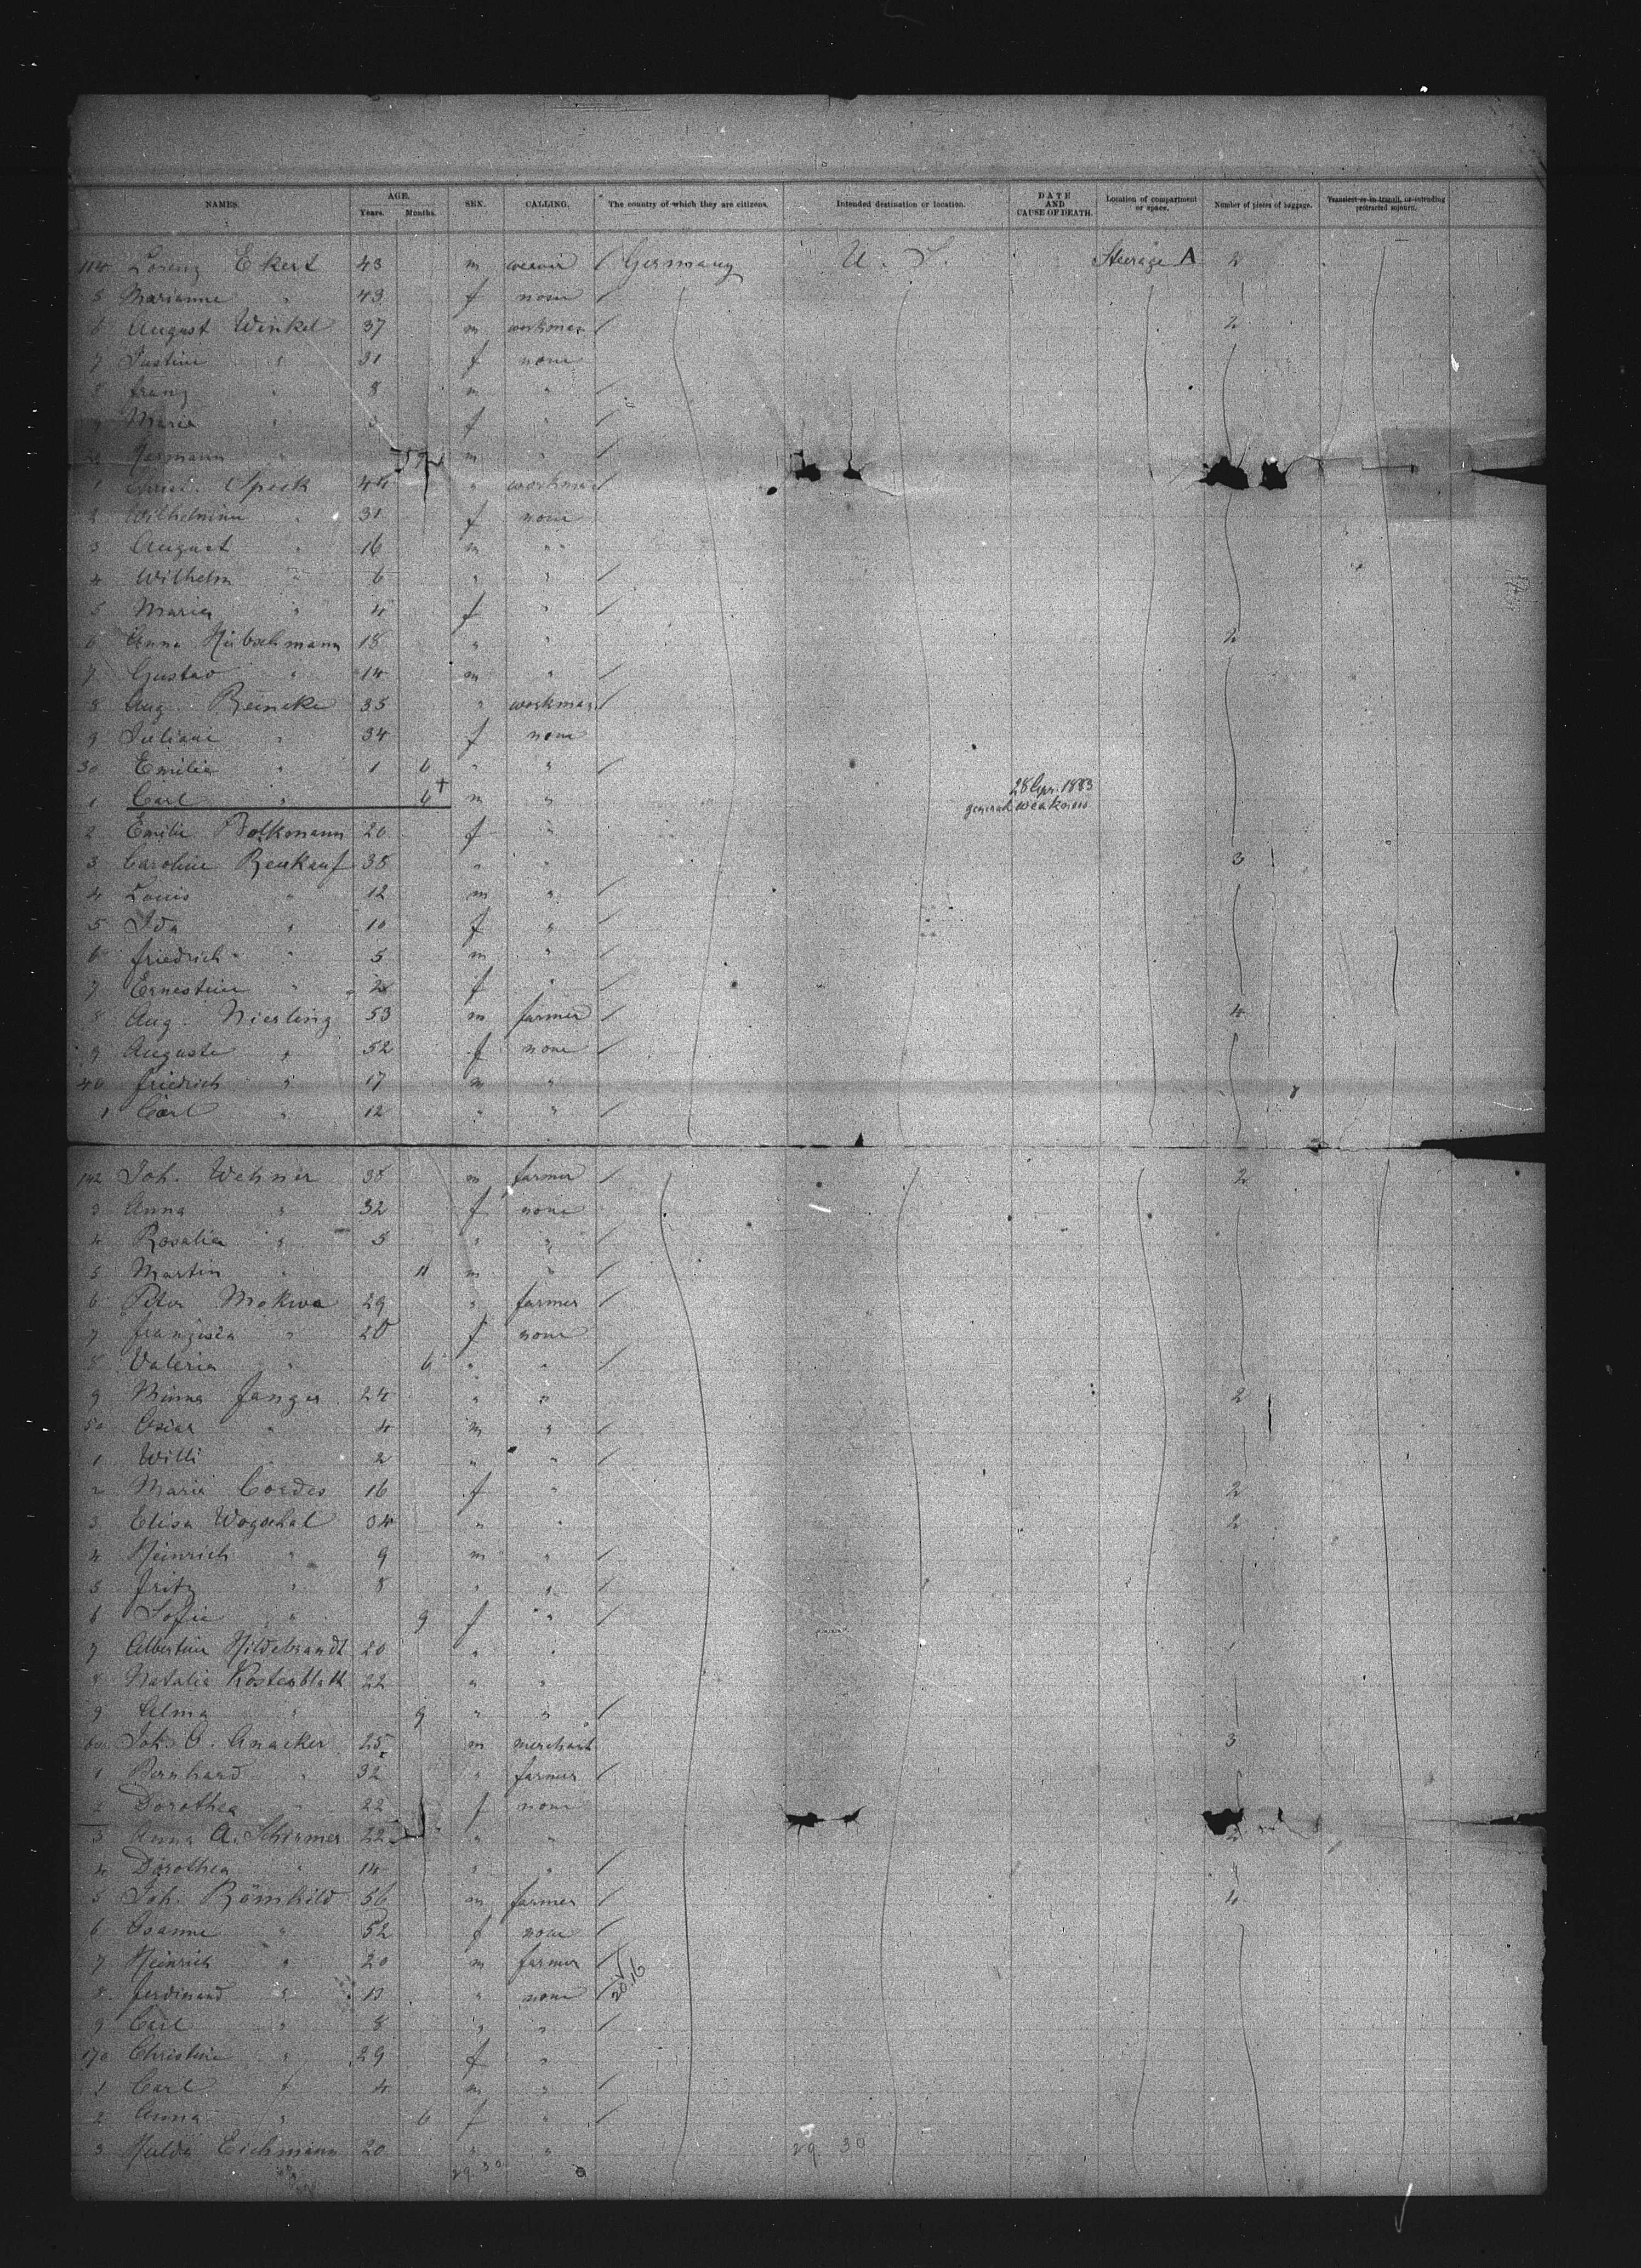 NAMES. AGE. Years. Months. SEX. CALLING. The country of which they are citizens. Intended destination or location. DATE AND CAUSE OF DEATH. Location of compartment or space. Number of pieces of baggage. Transient or in transit, or intending protracted sojourn.
114 Lorenz Ekert 43 m weaver / Germany U. S. Steerage A 2
5 Marianne " 43 f none /
6 August Winkel 37 m workman / 2
7 Justine " 31 f none
8 Franz " 8 m " /
9 Maria " 3 f " /
Hermann " m " /
1 Speck 44 " workman /
2 Wilhelmine " 31 f none
3 August " 16 m "
4 Wilhelm " 6 " " /
5 Maria " 4 f " /
6 Anna Hübschmann 18 " " 2
7 Gustav " 14 m "
8 Aug. Reincke 35 " workman /
9 Juliane " 34 f none
30 Emilie " 1 6 " " /
1 Carl " 6 + m " 28 Apr. 1883 general weakness
2 Emilie Bolkmann 20 f "
3 Caroline Reukauf 38 " " 3
4 Louis " 12 m " /
5 Ida " 10 f " /
6 Friedrich " 5 m " /
7 Ernestine " 2 f " /
8 Aug. Niesling 53 m farmer / 4
9 Auguste " 52 f none /
40 Friedrich " 17 m "
1 Carl " 12 " " /
142 Joh. Wehner 38 m farmer / 2
3 Anna " 32 f none
4 Rosalia " 5 " " /
5 Martin " 11 m " /
6 Peter Mokwa 29 " farmer /
7 Franziska " 20 f none
8 Valeria " 6 " " /
9 Minna Janger 24 " " 2
50 Oscar " 4 m " /
1 Willi 2 " " /
2 Marie Cordes 16 f " 2
3 Elisa Wogschal 34 " " 2
4 Heinrich " 9 m " /
5 Fritz " 8 " " /
6 Sofie " 9 f " /
7 Albertine Hildebrandt 20 " "
8 Natalie Kostenblatt 22 " "
9 Alma " 9 " " /
60 Joh. G. Anacker 25 m merchant 3
1 Bernhard " 32 " farmer /
2 Dorothea " 22 f none
3 Anna A. Schirmer 22 " " 2
4 Dorothea " 14 " " /
5 Joh. Römhild 56 m farmer / 4
6 Osanne " 52 f none /
7 Heinrich " 20 m farmer /
8 Ferdinand " 13 " none / 20.16
9 Carl " 8 " " /
170 Christine " 29 f "
1 Carl " 4 m " /
2 Anna " 6 f " /
3 Hulda Eichmann 20 " " 29 30
29. 30